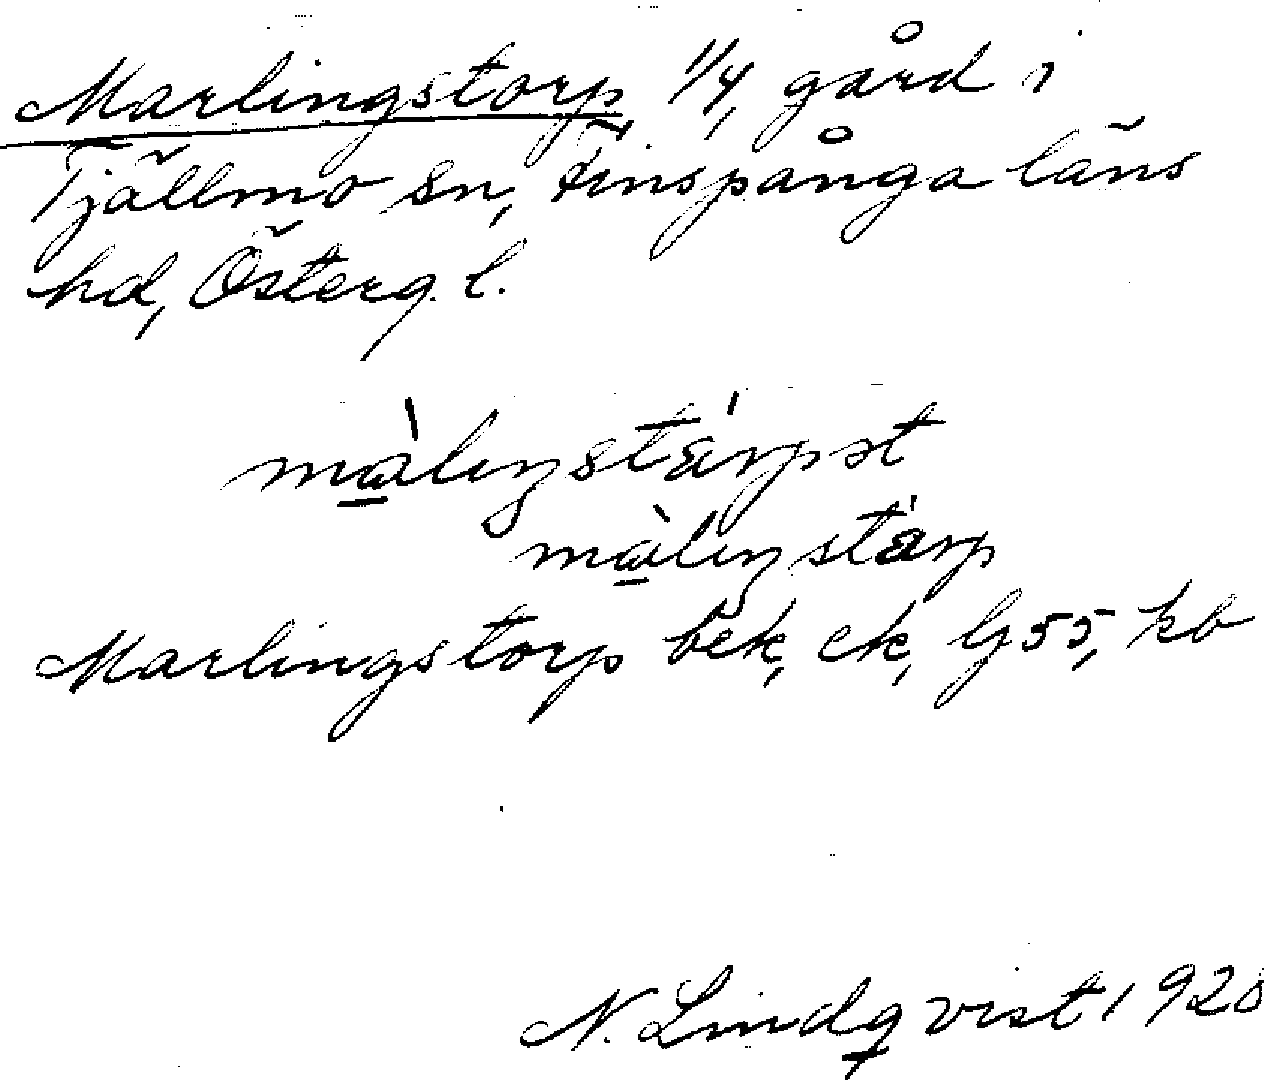 Marlingstorp 1/4, gård i
Tjällmo sn, Finspånga läns
hd, Österg. l.
màlıŋstárpst
màlıŋstárp
Marlingstorp bek, ek, G 55, kb
N. Lindqvist 1920